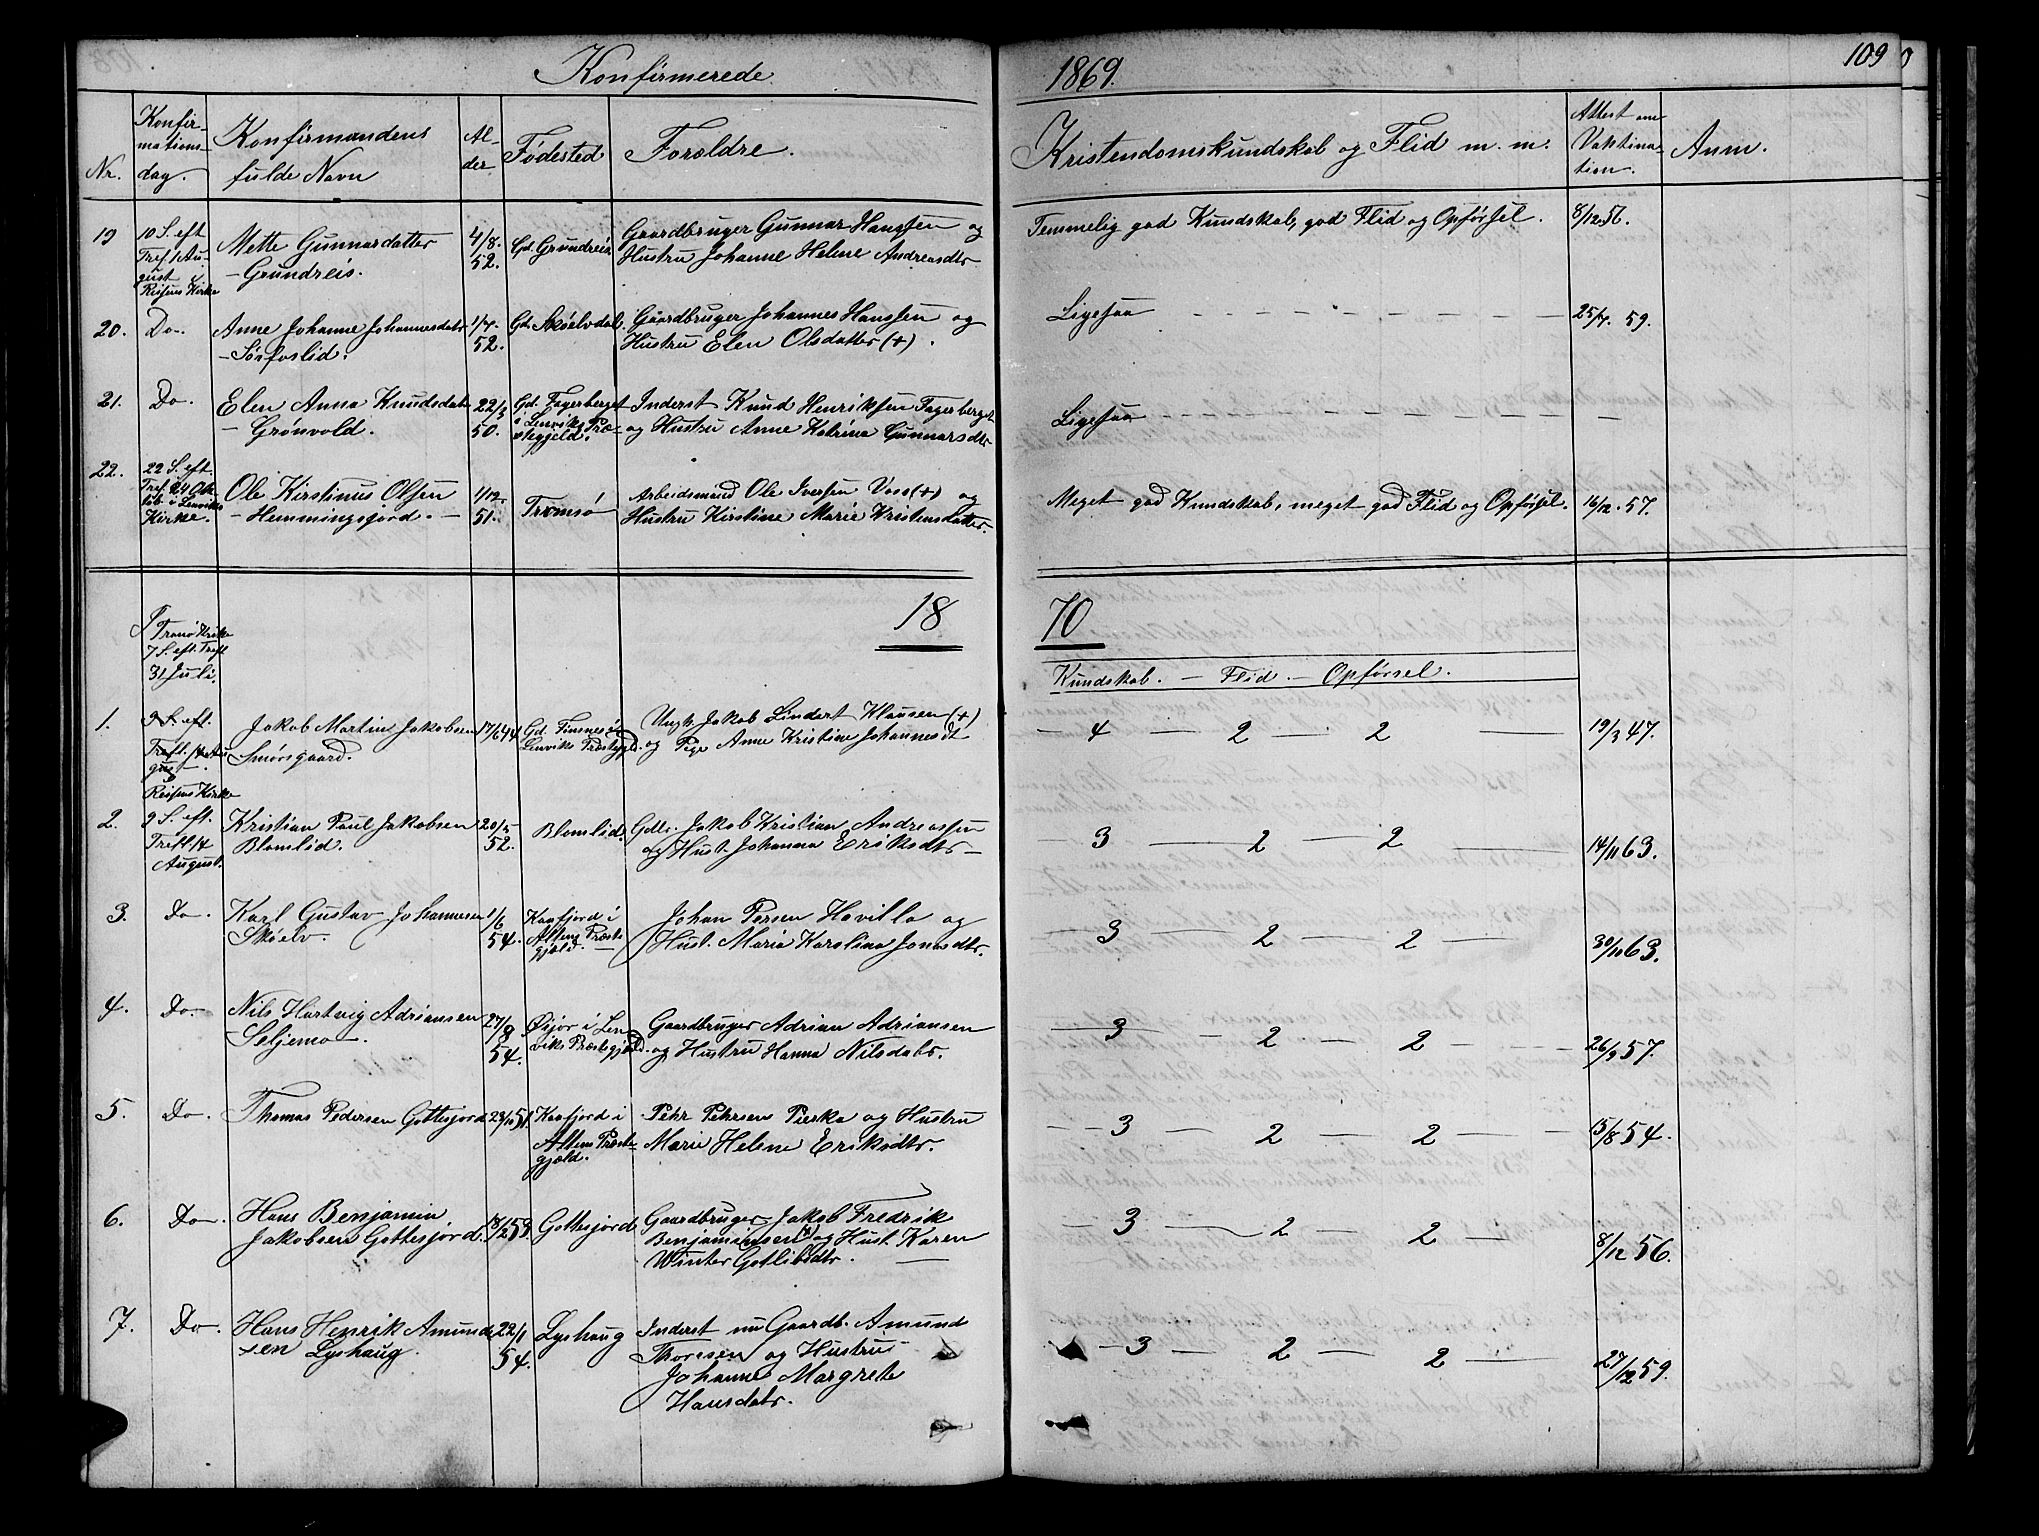 Konfirmerede
1869.
109
Nr.
Konfir-
mations-
dag.
Konfirmandens
fulde Navn
Al-
der
Fødested
Forældre.
Kristendomskundskab og Flid m. m.
Attest om
Vaktina-
tion.
Anm.
19
10 S. eft
Tref. 1 Au-
gust
Reisens Kirke
Mette Gunnardatter
- Grundreis.
4/8.
52.
Gd. Grundreis
Gaardbruger Gunnar Hanssen og
Hustru Johanne Helene Andreasdtr
Temmelig god Kundskab, god Flid og Opførsel.
8/12 56.
20.
Do.
Anne Johanne Johannesdatr
- Sørfoslid.
1/7.
52.
Gd. Skøelvdal.
Gaardbruger Johannes Hanssen og
Hustru Elen Olsdatter (+).
Ligesaa
25/7. 59.
21.
Do.
Elen Anna Knudsdatr
- Grønvold.
22/3
50.
Gd. Fagerberget
i Lenviks Præ-
stegjeld.
Inderst Knud Henriksen Fagerberget
og Hustru Anne Katrina Gunnarsdtr
Ligesaa
22.
22 S. eft.
Tref. 24 Ok-
tob. i Lenviks
Kirke.
Ole Kirstinus Olsen
- Hemmingsjord. -
1/12.
51.
Tromsø
Arbeidsmand Ole Iversen Voss (+) og
Hustru Kirstine Marie Kristensdatter.
Meget god Kundskab, meget god Flid og Opførsel.
16/12. 57.
18
70
I Tranø Kirke
7 S. eft. Tref.
31 Juli.
Kundskab. - Flid. - Opførsel.
1.
9 S. eft.
Tref. 14 Au-
gust.
Reisens Kirke
Jakob Martin Jakobsen
Smørsgaard.
17/6 44
Gd. Finnesø i
Lenviks Præstegjd.
Ungk. Jakob Lindert Klausen (+)
og Pige Anne Kristine Johannesdt
4 - 2 - 2
19/3 47.
2.
9 S. eft.
Tref. 14
August.
Kristian Paul Jakobsen
Blomlid.
20/5
52.
Blomlid.
Gdbr. Jakob Kristian Andreassen
og Hust. Johanna Eriksdtr -
3 - 2 - 2
14/11 63.
3.
Do.
Karl Gustav Johannesen
Skøelv.
1/6
54.
Kaafjord i
Altens Præste-
gjæld.
Johan Persen Havilla og
Hust. Maria Karolina Jonasdtr.
3 - 2 - 2
30/11 63.
4.
Do.
Nils Hartvig Adriansen
Seljemo.
27/8
54.
Øijor i Len-
viks Præstegjæld.
Gaardbruger Adrian Adriansen
og Hustru Hanna Nilsdatr.
3 - 2 - 2
26/9 57.
5.
Do.
Thomas Pedersen Gottesjord
23/10 51.
Kaafjord i
Altens Præste-
gjæld.
Pehr Pehrsen Pieska og Hustru
Marie Helene Eriksdtr.
3 - 2 - 2
15/8 54.
6.
Do.
Hans Benjamin
Jakobsen Gottesjord.
18/2 53.
Gottesjord
Gaardbruger Jakob Fredrik
Benjaminsen (+) og Hust. Karen
Winter Gotlibsdtr.
3 - 2 - 2
8/12 56.
7.
Do.
Hans Henrik Amund-
sen Lyshaug.
22/1
54.
Lyshaug
Inderst nu Gaardb. Amund
Thoresen og Hustru
Johanne Margrete
Hansdatr.
3 - 2 - 2
27/12 59.